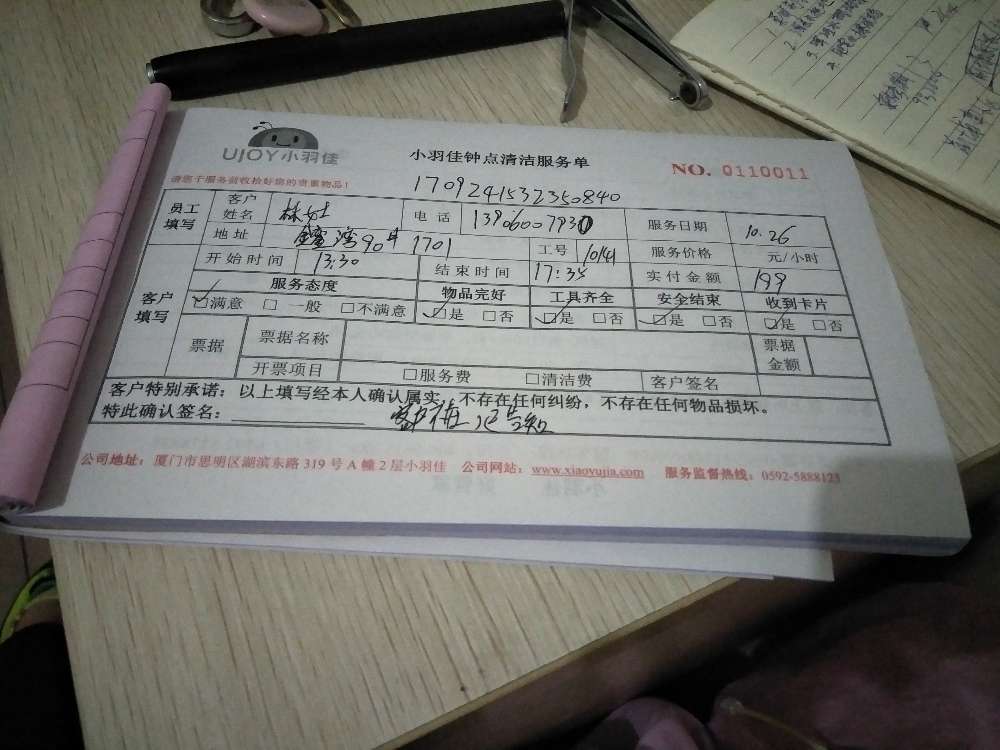 UJOY小羽佳
小羽佳钟点清洁服务单
NO. 0110011
请您于服务前收拾好您的贵重物品!
1709241532350840
员工填写 客户姓名 电话 13906007930 服务日期 10.26
地址 90# 1701 工号 服务价格 元/小时
客户填写 开始时间 13:30 结束时间 17:35 实付金额 199
服务态度 物品完好 工具齐全 安全结束 收到卡片
☑满意 □一般 □不满意 ☑是 □否 ☑是 □否 ☑是 □否 ☑是 □否
票据 票据名称 票据金额
开票项目 □服务费 □清洁费 客户签名
客户特别承诺:以上填写经本人确认属实,不存在任何纠纷,不存在任何物品损坏。
特此确认签名:
公司地址:厦门市思明区湖滨东路 319 号 A 幢 2 层小羽佳 公司网站:www.xiaoyujia.com 服务监督热线:0592-5888123